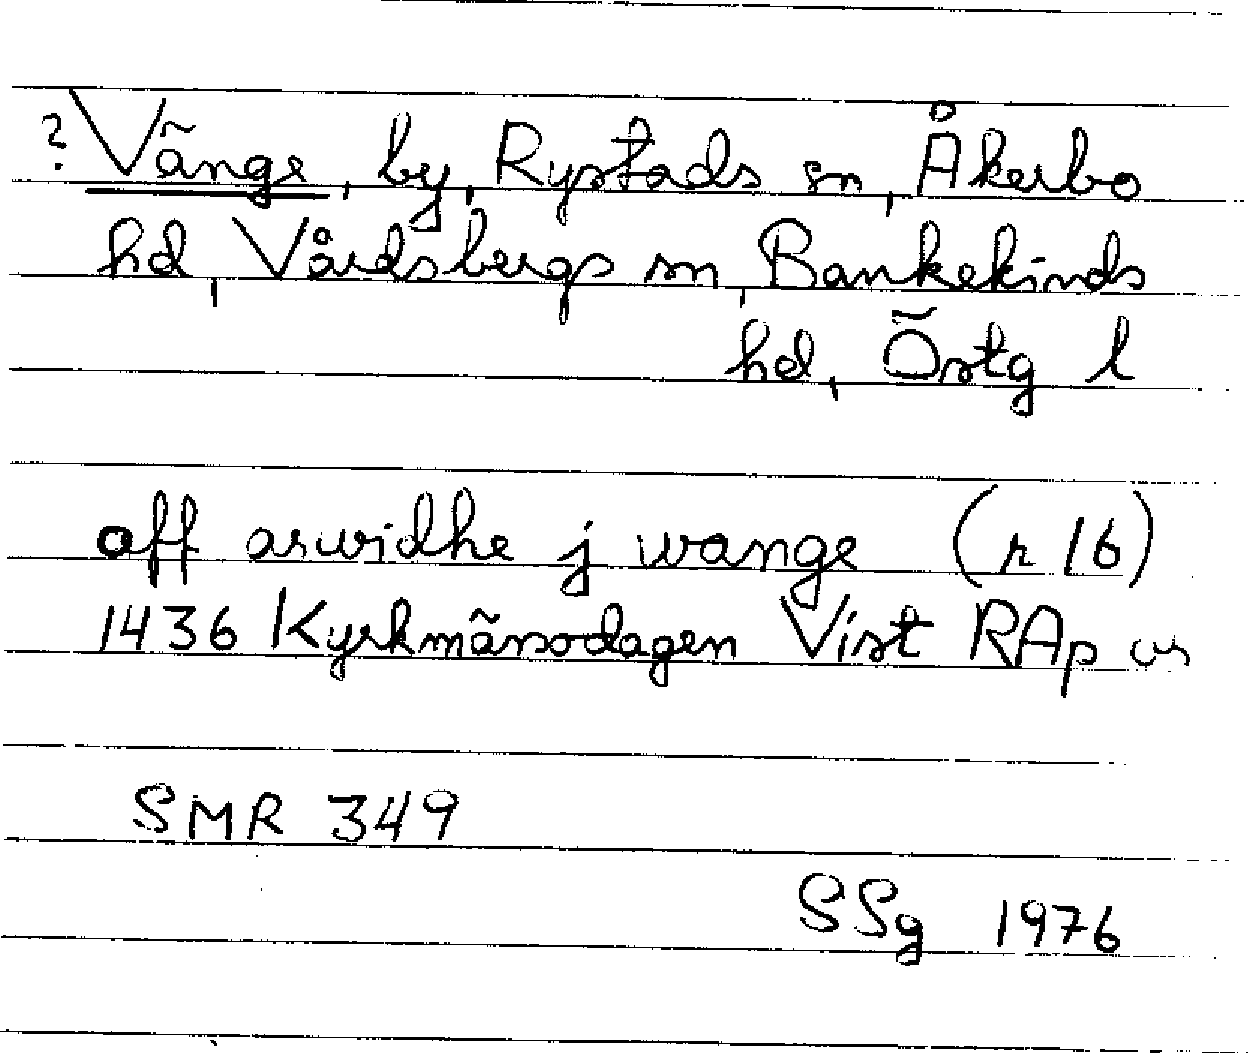 ? Vänge, by, Rystads sn, Åkerbo
hd, Vårdsbergs sn, Bankekinds
hd, Östg l
off arwidhe j wange (r 16)
1436 Kyrkmässodagen Vist RAp or
SMR 349
SSg 1976